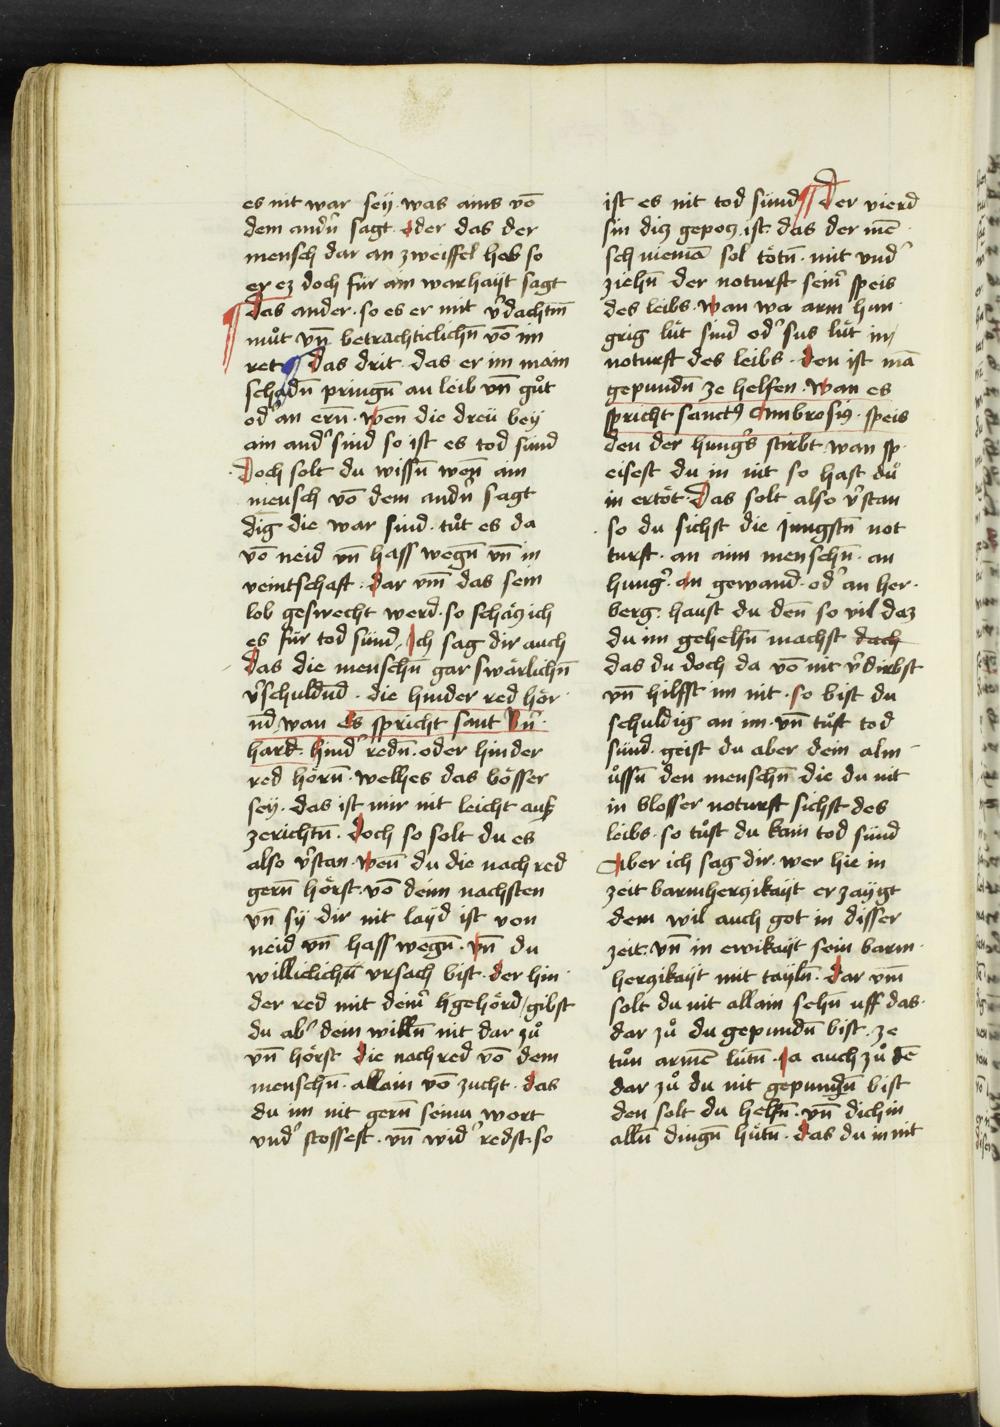 es nit war seÿ · was ains vō
dem andn̄ sagt · oder das der
mensch dar an zweiffel hab so
er ez doch für ain warhaÿt sagt
¶ das ander · so es er mit v̉dachtm̄
můt vn̄ betrachticlichn̄ vō im
ret ¶ Das drit · das er im main
schadn̄ pringn̄ an leib vn̄ gůt
od̉ an ern̄ · wen̄ die dreü beÿ
ain and̉ sind so ist es tod sünd
Doch solt du wissn̄ wen̄ ain
mensch vō dem andn̄ sagt
dig die war sind · tůt es da
vō neid vn̄ hass wegn̄ vn̄ in
veintschaft · dar vm̄ das sein
lob geswecht werd · so schätz ich
es für tod sünd · Ich sag dir auch
das die menschn̄ gar swärlichn̄
v̉schuldn̄d · die hinder red hör ·
n̄d wan es spricht sant B̉n̄ ·
hard · hind̉ redn̄ · oder hinder
red hörn̄ · welhes das bösser
seÿ · das ist mir nit leicht auß
zerichtn̄ · Doch so solt du es
also v̉stan · wen̄ du die nach red
gern̄ hörst · vō deim nachsten
vn̄ sÿ dir nit laÿd ist von
neid vn̄ hass wegn̄ · vn̄ du
williclichn̄ vrsach bist · der hin ·
der red mit deim̉ gehörd / gibst
du ab̉ dein willn̄ nit dar zů
vn̄ hörst die nach red vō dem
menschn̄ · allain vō zucht · das
du im nit gern̄ seinu wort
vnd̉ stossest · vn̄ wid̉ redst · so
ist es nit tod sünd ¶ Der vierd
sin ditz gepotz ist · das der mē ·
sch niemā sol tötn̄ · mit vnd̉
ziehn̄ der noturft seim̉ speis
des leibs · wan wa arm hun ·
grig lüt sind od̉ sus lüt in
noturft des leibs · den ist mā
gepundn̄ ze helfen · wan es
spricht sanctꝰ Ambrosiꝰ · speis
den der hungers stirbt · wan sp ·
eisest du in nit so hast dů
in ertöt · Das solt also v̉stan
so du sichst die jungstn̄ not
turft · an aim menschn̄ · an
hung̉ · an gewand · od̉ an her ·
berg · haust du den̄ so vil daz
du im gehelfn̄ machst dach
das du doch da vō nit v̉dirbst
vn̄ hilfst im nit · so bist du
schuldig an im · vn̄ tůst tod
sünd · geist du aber dein alm ·
ůssn̄ den menschn̄ die du nit
in blosser noturft sichst des
leibs · so tůst du kain tod sünd
Aber ich sag dir · wer hie in
zeit barmhertzikaÿt erzaÿgt
dem wil auch got in disser
zeit · vn̄ in ewikaÿt sein barm ·
hertzikaÿt mit taÿln̄ · Dar vm̄
solt du nit allain sehn̄ uff das ·
dar zů du gepundn̄ bist · ze
tůn armē lütn̄ · Ja auch zů dē
dar zů du nit gepundn̄ bist
den solt du helfn̄ · vn̄ dich in
alln̄ dingn̄ hütn̄ · das du in nit